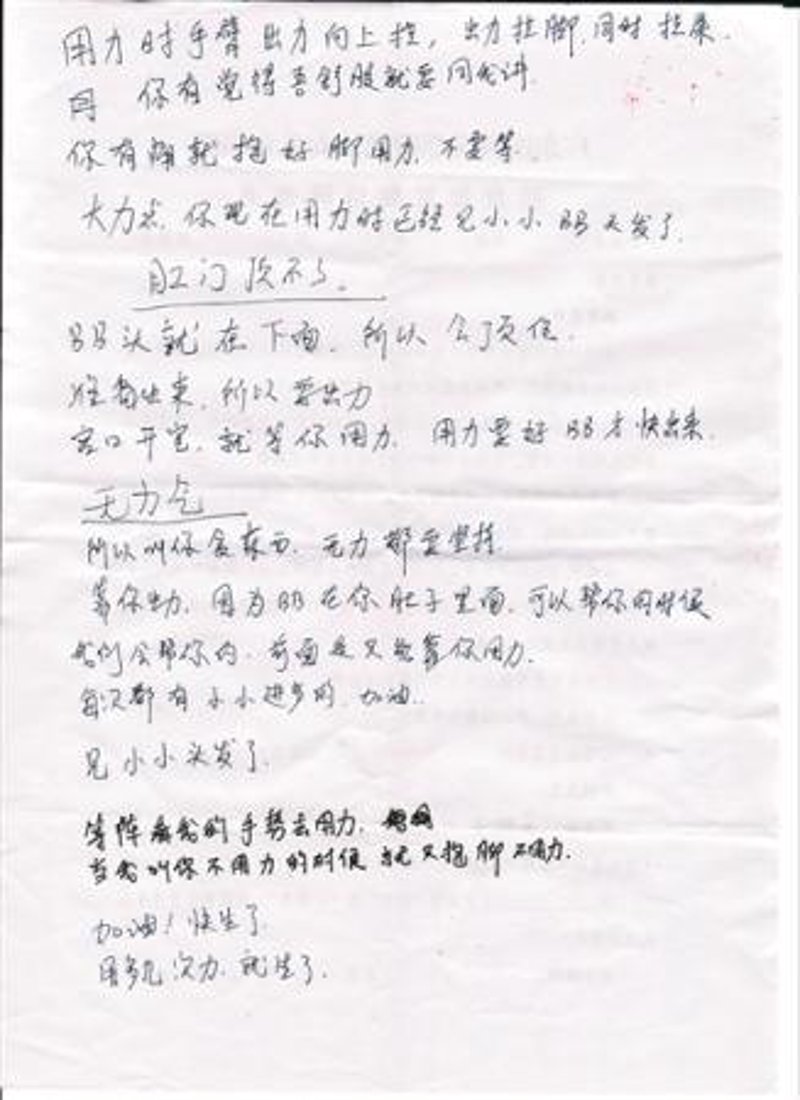 用力时手臂出力向上拉，出力拉脚，同时拉屎.
你有觉得吾舒服就要同我讲.
你有痛就抱好脚用力，不要等.
大力点，你现在用力时已经见小小BB头发了.
肛门顶不了。
BB头就在下面，所以会顶住.
准备出来，所以要出力
宫口开完，就等你用力，用力要好BB才快出来.
无力气
所以叫你食东西，无力都要坚持.
靠你出力，因为BB在你肚子里面，可以帮你的时候
我们会帮你的，前面是又要靠你用力.
每次都有小小进步的，加油..
见小小头发了.
等阵看我的手势去用力，
当我叫你不用力的时候就又抱脚不用力.
加油！快生了.
用多几次力，就生了.